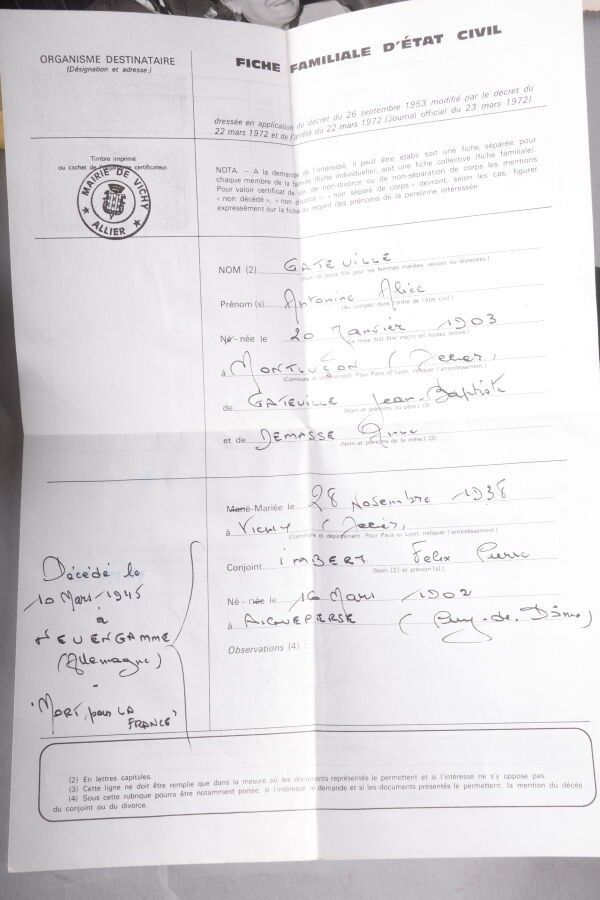 ORGANISME DESTINATAIRE
(Désignation et adresse.)
FICHE FAMILIALE D'ÉTAT CIVIL
dressée en application du décret du 26 septembre 1953 modifié par le décret du
22 mars 1972 et de l'arrêté du 22 mars 1972 (Journal officiel du 23 mars 1972)
Timbre imprimé
ou cachet de certificateur.
MAIRIE DE VICHY
ALLIER
NOTA. – A la demande de l'intéressé, il peut être établi soit une fiche séparée pour
chaque membre de la famille (fiche individuelle), soit une fiche collective (fiche familiale).
Pour valoir certificat de vie, de non-divorce ou de non-séparation de corps les mentions
« non décédé », « non divorcé », « non séparé de corps » devront, selon les cas, figurer
expressément sur la fiche au regard des prénoms de la personne intéressée.
NOM (2) GATEVILLE
(Nom de jeune fille pour les femmes mariées, veuves ou divorcées.)
Prénom(s) Antonine Alice
(Au complet dans l'ordre de l'état civil.)
Né-née le 20 Janvier 1903
(Le mois doit être inscrit en toutes lettres.)
à MONTLUÇON (Allier)
(Commune et département. Pour Paris et Lyon, indiquer l'arrondissement.)
de GATEVILLE Jean-Baptiste
(Nom et prénoms du père.) (3)
et de DEMASSE Anne
(Nom et prénoms de la mère.) (3)
Marié-Mariée le 28 Novembre 1938
à VICHY (Allier)
(Commune et département. Pour Paris et Lyon, indiquer l'arrondissement.)
Conjoint IMBERT Felix Pierre
(Nom (2) et prénom(s).)
Né-née le 16 Mars 1902
à AIGUEPERSE (Puy-de-Dôme)
Observations (4) :
Décédé le
10 Mars 1945
à
NEUENGAMME
(Allemagne)
-
"MORT pour LA
FRANCE"
(2) En lettres capitales.
(3) Cette ligne ne doit être remplie que dans la mesure où les documents représentés le permettent et si l'intéressé ne s'y oppose pas.
(4) Sous cette rubrique pourra être notamment portée, si l'intéressé le demande et si les documents présentés le permettent, la mention du décès
du conjoint ou du divorce.